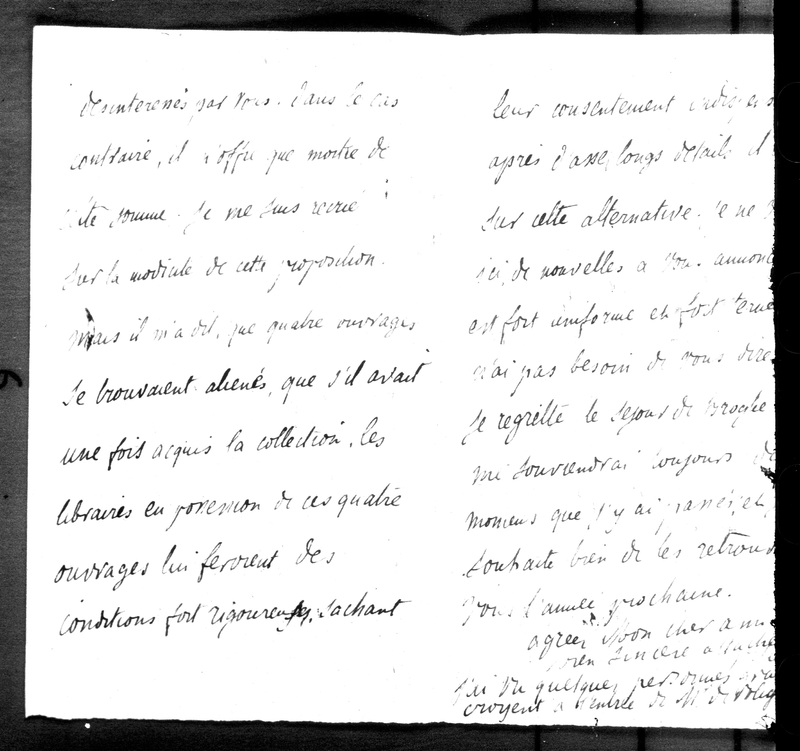 desinteressés par vous. Dans le cas
contraire, il n'offre que moitié de
cette somme. Je me suis recrié
sur la modicité de cette proposition.
Mais il m'a dit, que quatre ouvrages
se trouvaient alienés, que s'il avait
une fois acquis la collection, les
libraires en possession de ces quatre
ouvrages lui feroient des
conditions fort rigoureuses, sachant
leur consentement
après d'assez longs details il
sur cette alternative. Je ne
ici, de nouvelles a vous annonc
est fort uniforme et fort terne
n'ai pas besoin de vous dire
je regrette le sejour de Broglie
me souviendrai toujours de
momens que j'y ai passés, et
souhaite bien de les retrouve
vous l'année prochaine.
agréez Mon cher ami
bien sincere attache
J'ai vu quelques personnes
croyent a l'entrée de Mr de Polig